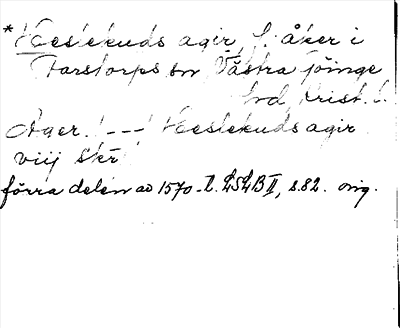 * Heslekuds agir, f. åker i
Farstorps sn, Västra göinge
hd, Krist. l.
Ager. [---] Heslekuds agir
viij skr
förra delen av 1570-t. LSLB II, s. 82. orig.